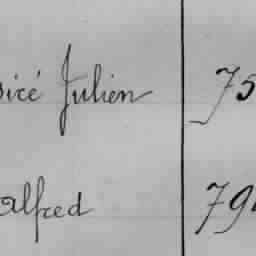 Julien 75
Alfred 79